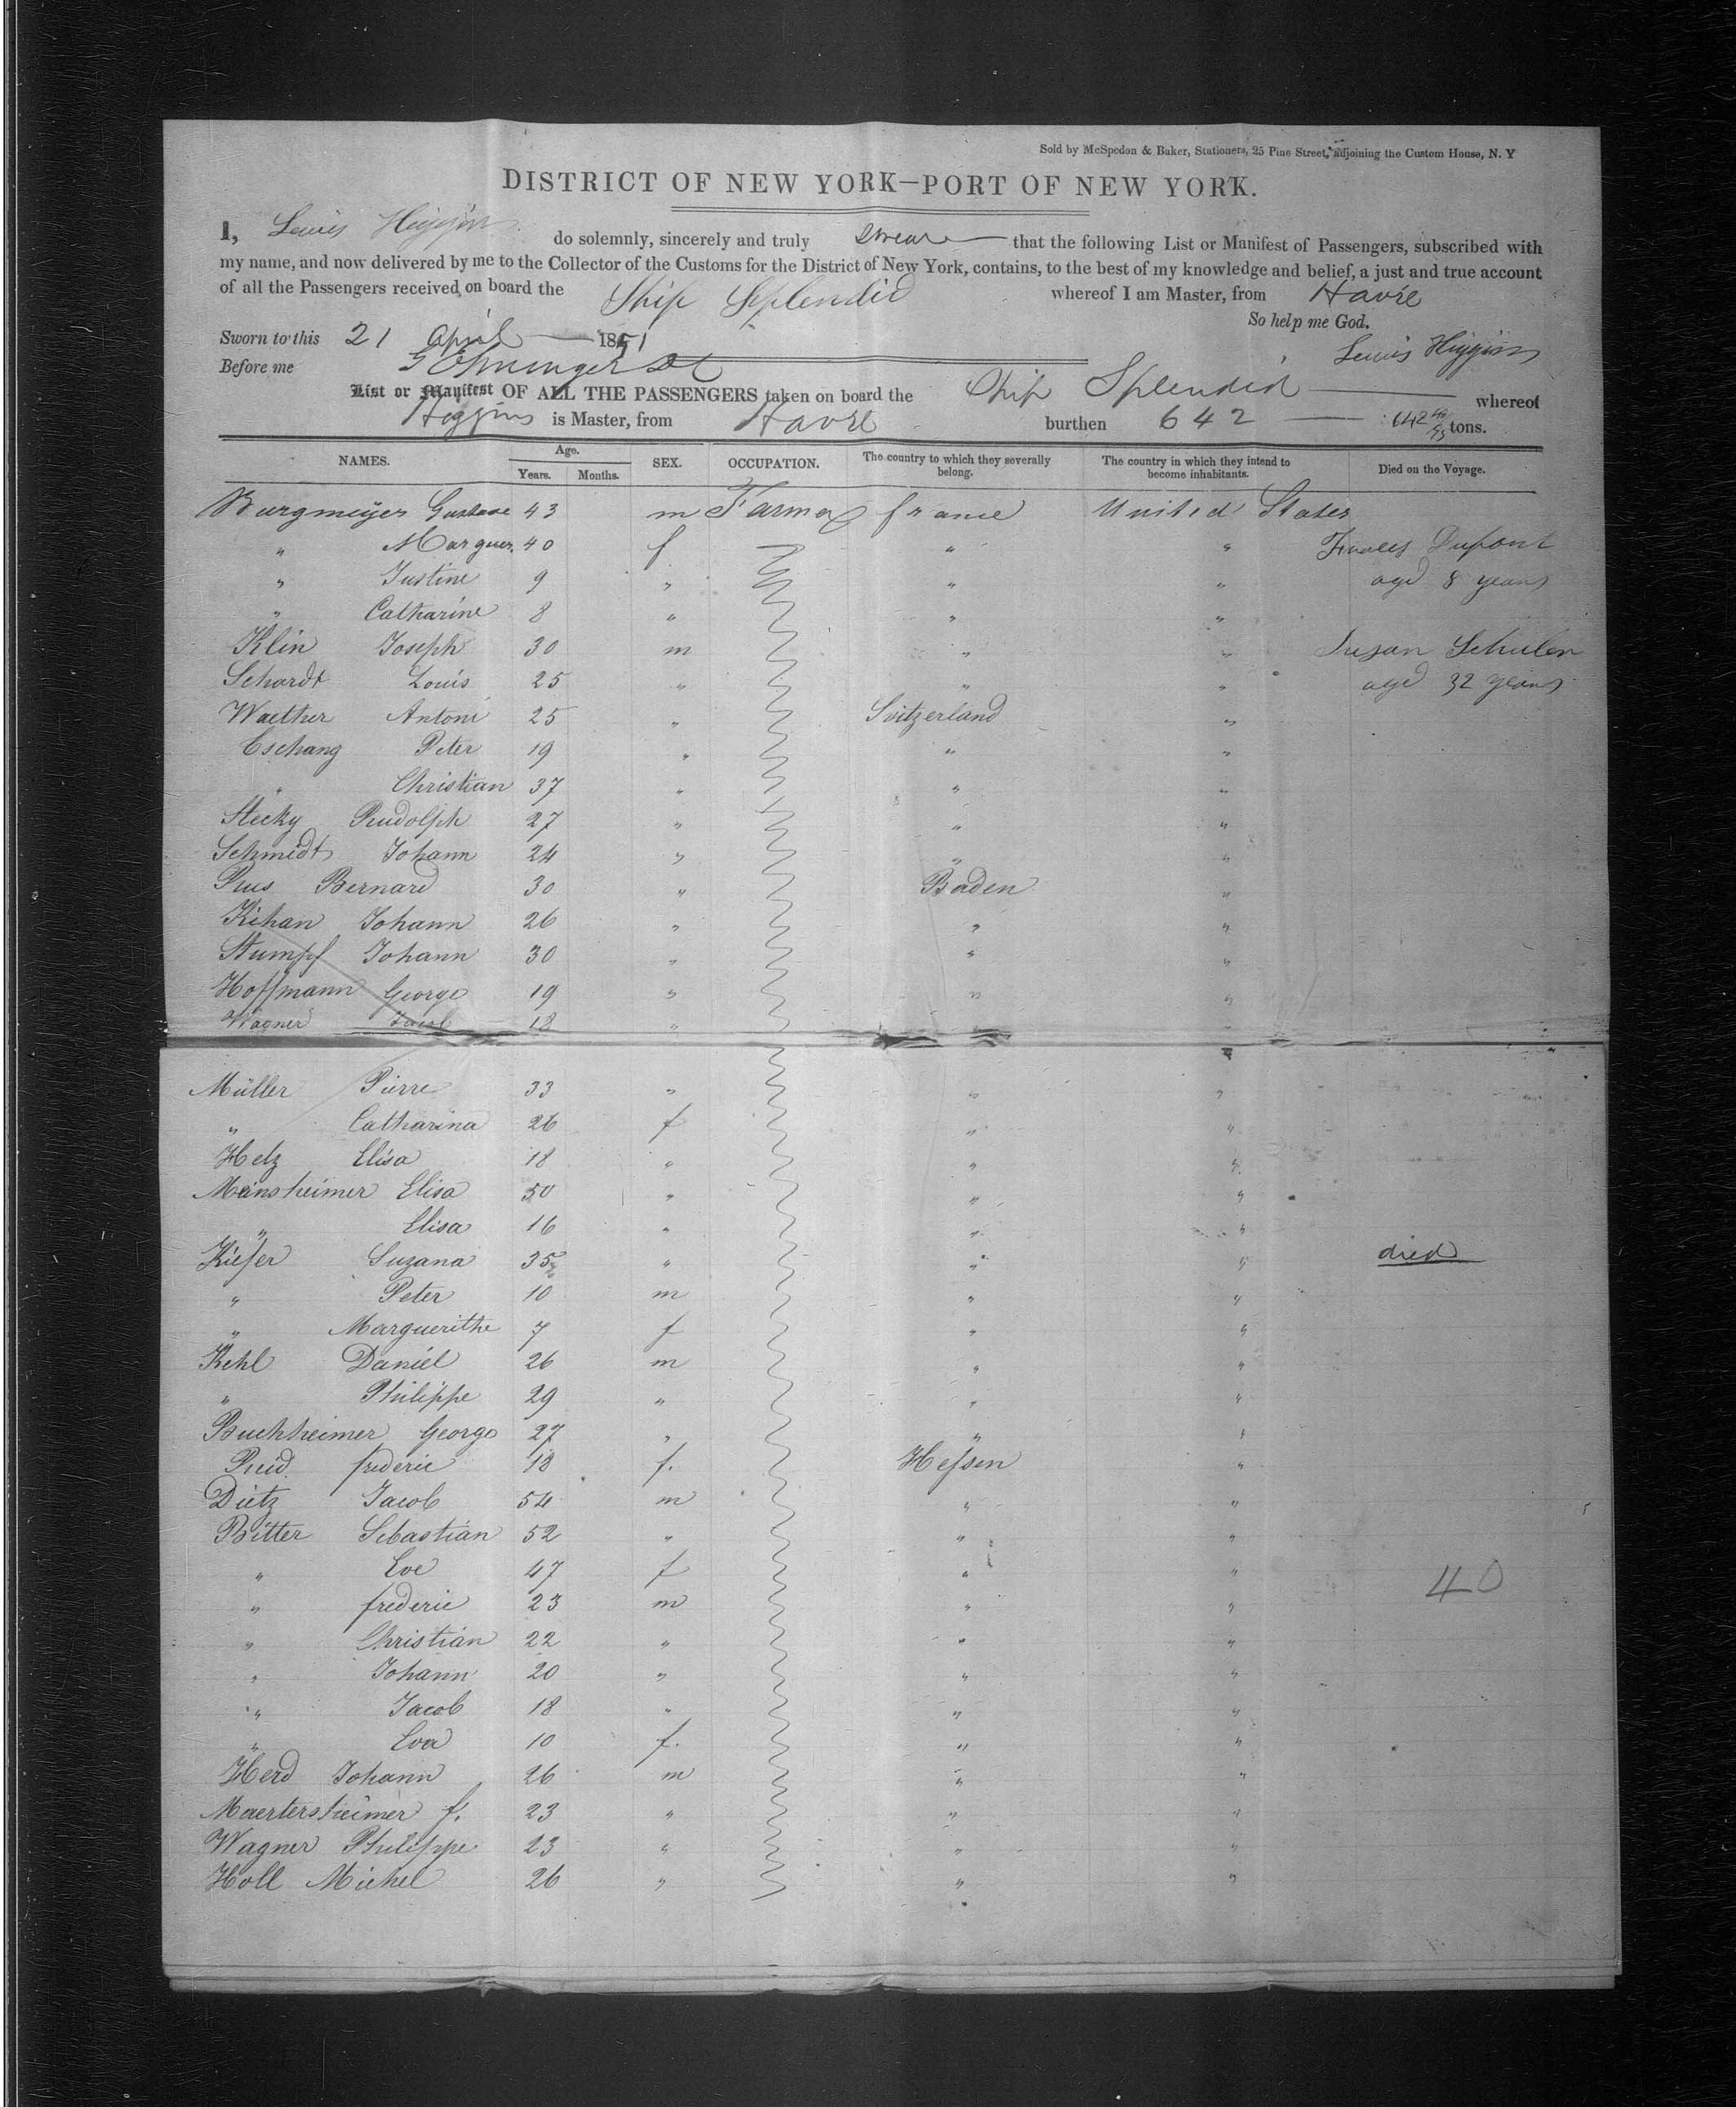 Sold by McSpedon & Baker, Stationers, 25 Pine Street, adjoining the Custom House, N. Y
DISTRICT OF NEW YORK—PORT OF NEW YORK.
I, Lewis Higgins do solemnly, sincerely and truly swear that the following List or Manifest of Passengers, subscribed with
my name, and now delivered by me to the Collector of the Customs for the District of New York, contains, to the best of my knowledge and belief, a just and true account
of all the Passengers received on board the Ship Splendid whereof I am Master, from Havre
So help me God.
Sworn to this 21 April 1851
Lewis Higgins
Before me
List or Manifest OF ALL THE PASSENGERS taken on board the Ship Splendid whereof
Higgins is Master, from Havre burthen 642 642 40/95 tons.
NAMES. Age. Years. Months. SEX. OCCUPATION. The country to which they severally belong. The country in which they intend to become inhabitants. Died on the Voyage.
Burgmeyer Gustave 43 m Farmer france United States
" Marguer. 40 f " " Dupont
" Justine 9 " " " aged 8 years
" Catharine 8 " " "
Klin Joseph 30 m " " Susan Schulen
Schardt Louis 25 " " " aged 32 years
Waether Antoni 25 " Switzerland "
Eschang Peter 19 " " "
" Christian 37 " " "
Stecky Rudolph 27 " " "
Schmidt Johann 24 " " "
Pius Bernard 30 " Baden "
Kihan Johann 26 " " "
Stumpf Johann 30 " " "
Hoffmann George 19 " " "
Wagner Jacob 18 "
Müller Pierre 33 " " "
" Catharina 26 f " "
Hetz Elisa 18 " " "
Mansheimer Elisa 50 " " "
" Elisa 16 " " "
Kiefer Suzana 35 " " " died
" Peter 10 m " "
" Marguerithe 7 f " "
Kehl Daniel 26 m " "
" Philippe 29 " " "
Buchheimer George 27 " " "
Reid frederic 18 f. Hessen "
Dietz Jacob 54 m " "
Ritter Sebastian 52 " " "
" Eve 47 f " " 40
" frederic 23 m " "
" Christian 22 " " "
" Johann 20 " " "
" Jacob 18 " " "
" Eva 10 f. " "
Herd Johann 26 m " "
Maertersheimer f. 23 " " "
Wagner Philippe 23 " " "
Holl Michel 26 " " "